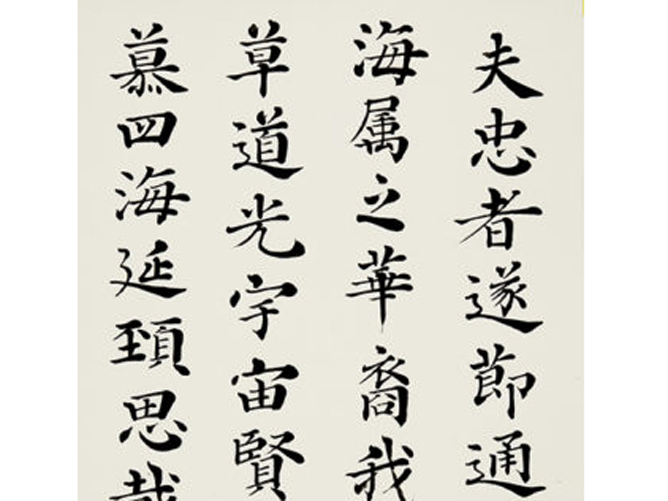 夫忠者遂節通
海属之華裔我
草道光宇宙賢
慕四海延頚思